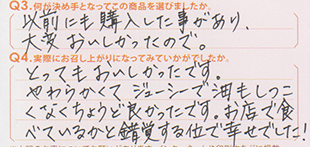 Q3.何が決め手となってこの商品を選びましたか。
以前にも購入した事があり、
大変おいしかったので。
Q4.実際にお召し上がりになってみていかがでしたか。
とってもおいしかったです。
やわらかくてジューシーで油もしつこ
くなくちょうど良かったです。お店で食
べているかと錯覚する位で幸せでした!